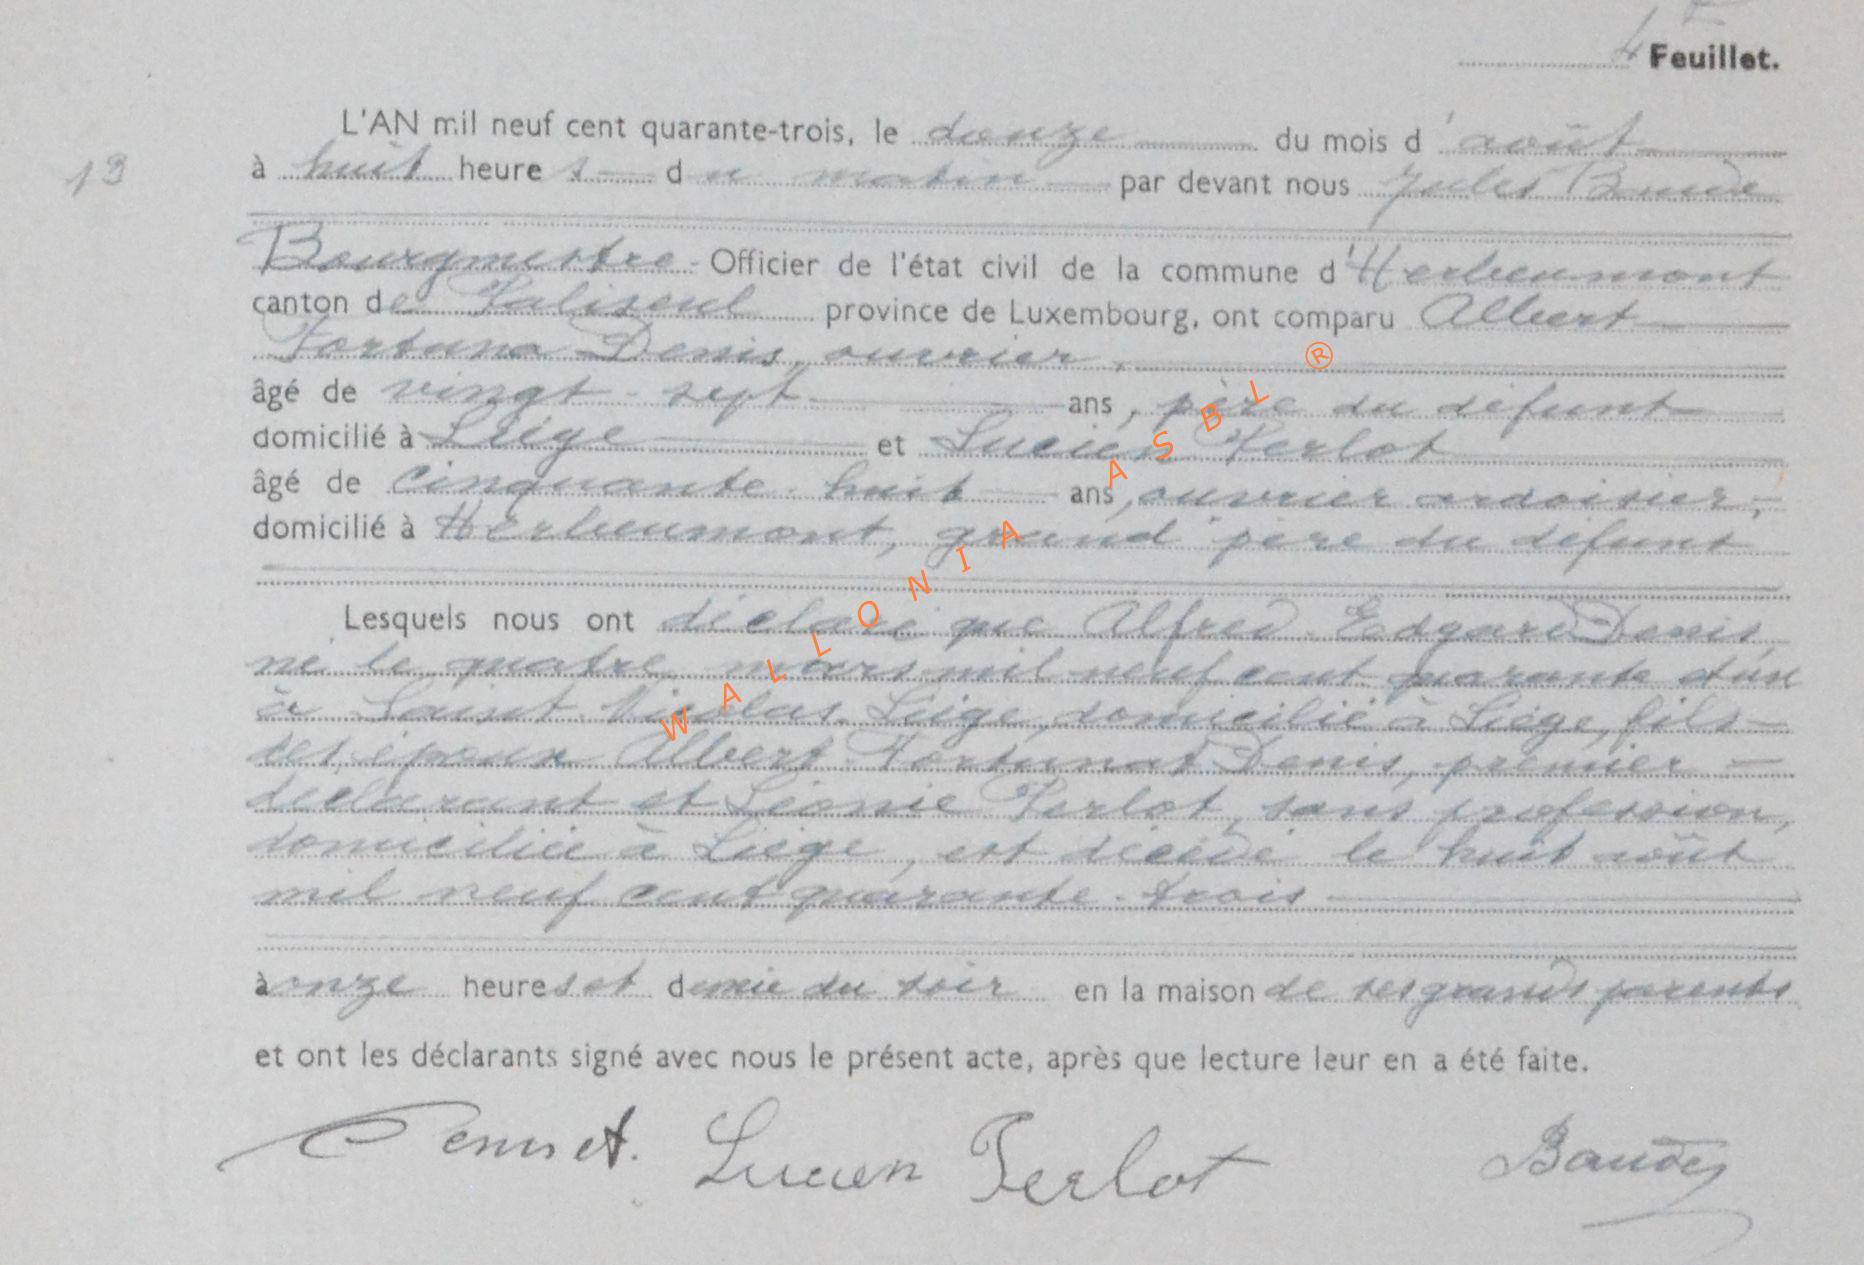 4 Feuillet.
L'AN mil neuf cent quarante-trois, le douze du mois d'août
13
à huit heures du matin par devant nous Jules Baude
Bourgmestre Officier de l'état civil de la commune d'Herbeumont
canton de Paliseul province de Luxembourg, ont comparu Albert
Fortuna Denis, ouvrier,
âgé de vingt-sept ans, père du défunt
domicilié à Liège et Lucien Perlot
âgé de cinquante huit ans, ouvrier ardoisier,
domicilié à Herbeumont, grand-père du défunt
Lesquels nous ont déclaré que Alfred Edgard Denis,
né le quatre mars mil neuf cent quarante et un
à Saint Nicolas Liège, domicilié à Liège, fils
des époux Albert Fortunat Denis, premier
déclarant et Léonie Perlot, sans profession,
domiciliée à Liège, est décédé le huit août
mil neuf cent quarante-trois
à onze heures et demie du soir en la maison de ses grands parents
et ont les déclarants signé avec nous le présent acte, après que lecture leur en a été faite.
Denis A. Lucien Perlot Baudey
WALLONIA ASBL ®